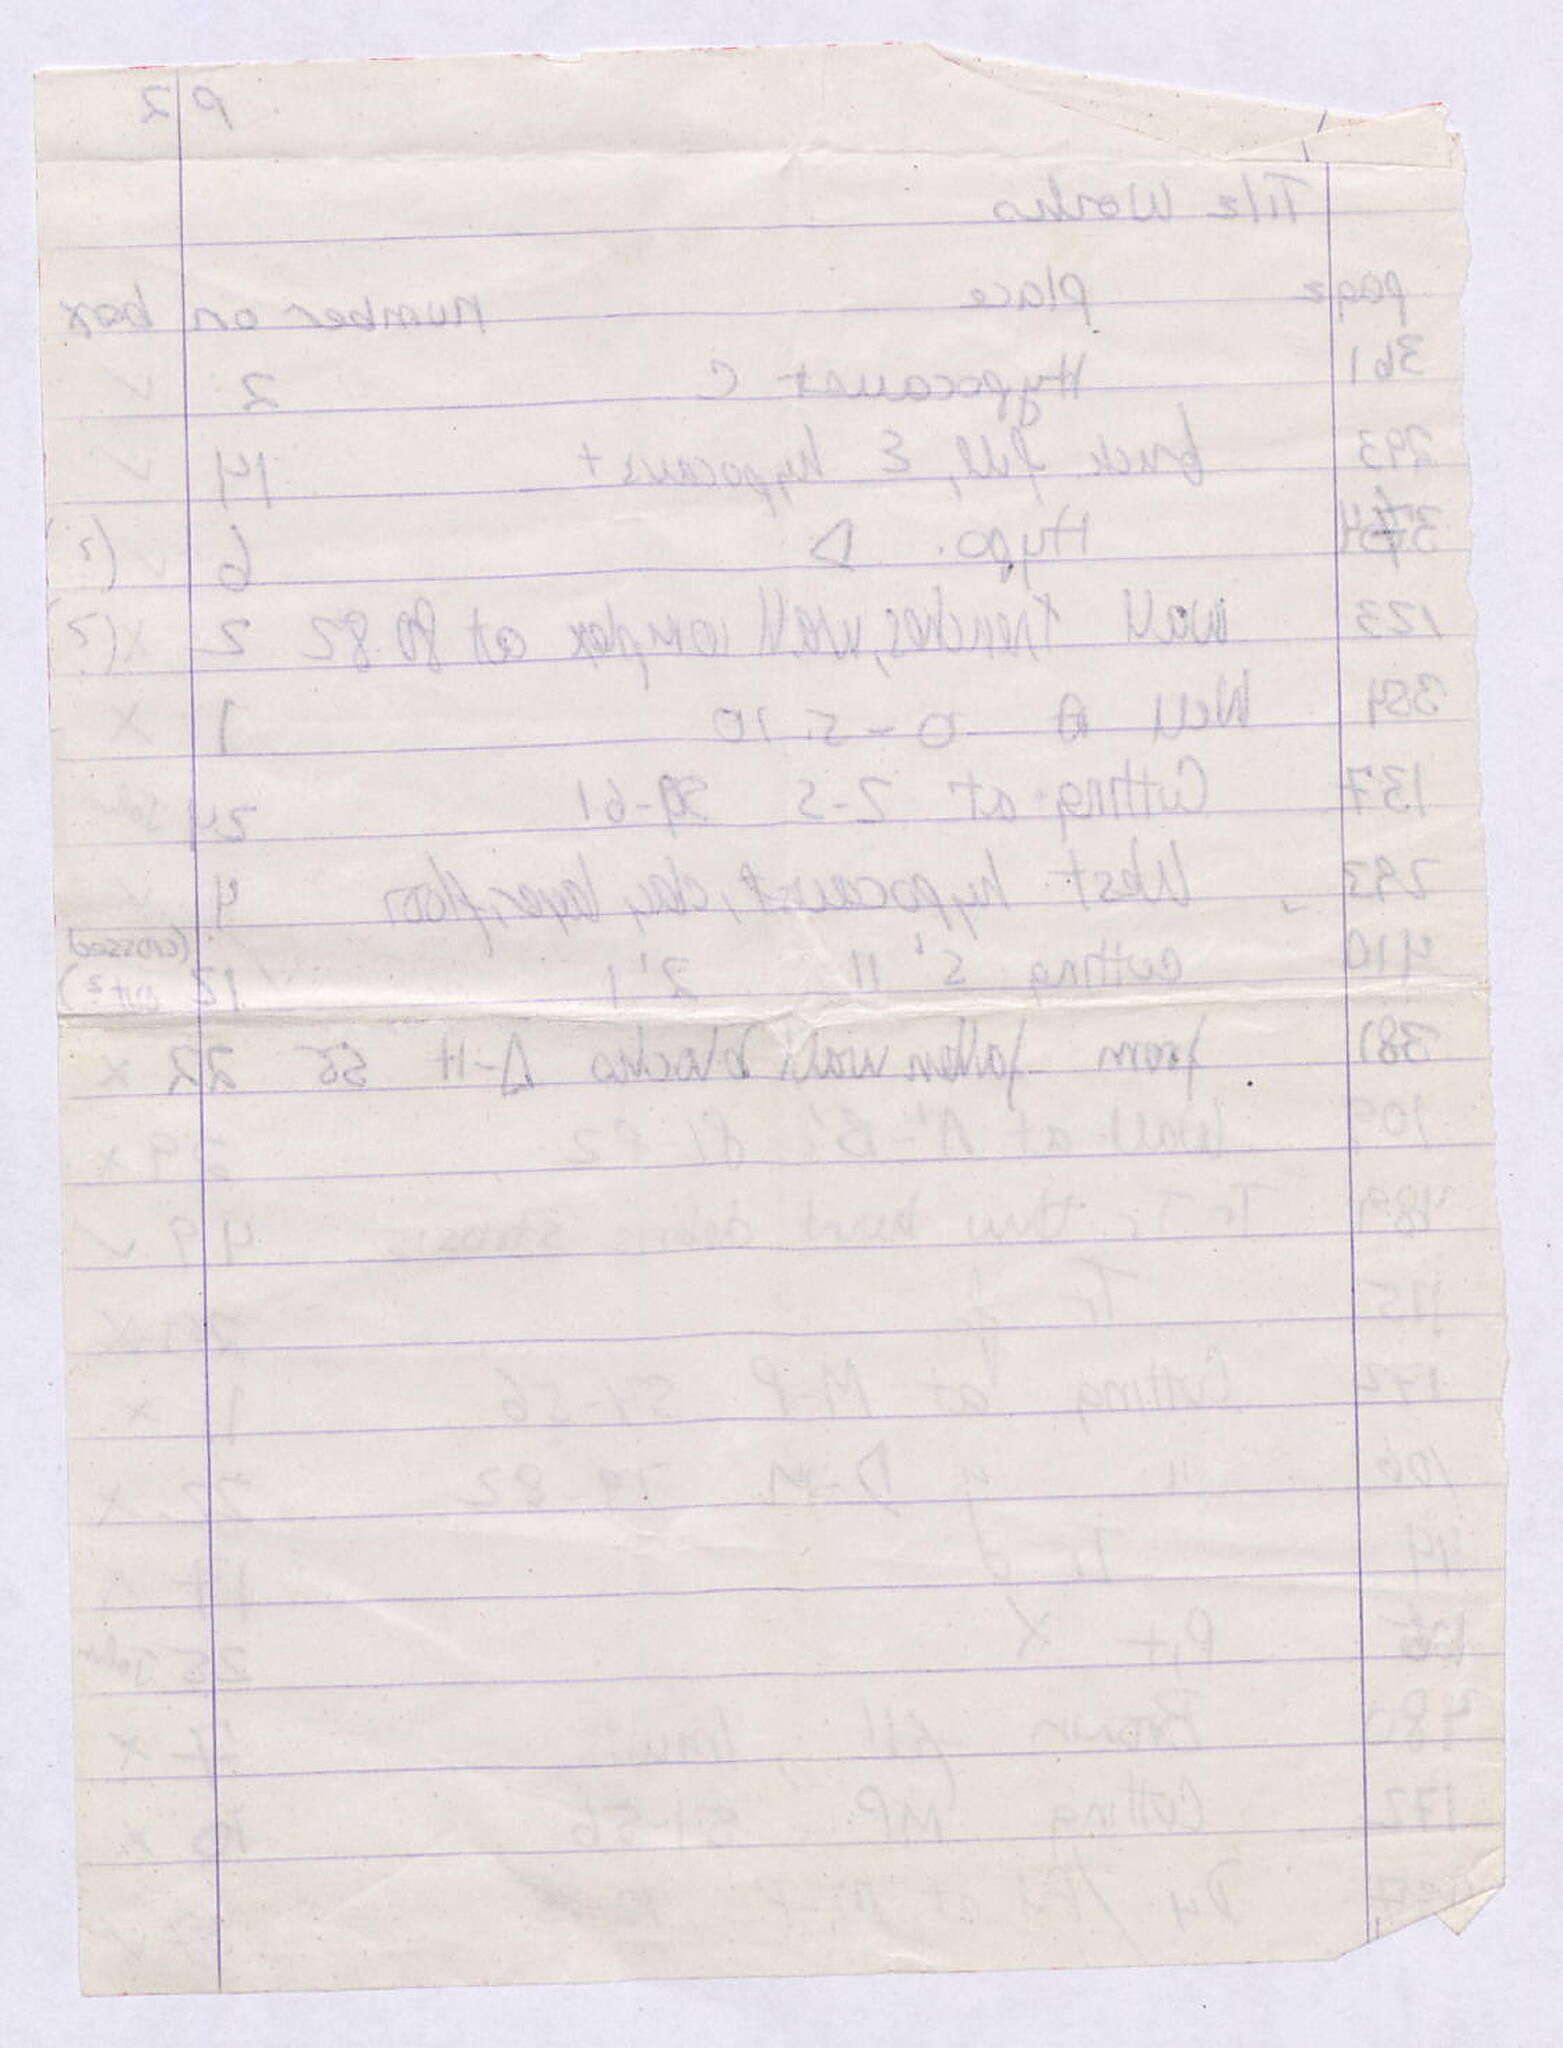 p 2
Tile Works
page place number on box
361 Hypocaust C 2 ✓
293 brick fill, E hypocaust 14 ✓
Hypo. D 6 ✓ (?)
123 wall trenches, wall complex at 80.82 2 x (?)
384 Well A 0-5.10 1 x
137 Cutting at Z-S 59-61 24 John
293 West hypocaust, clay layer, floor 4 ✓
410 cutting S' 11 2'1 12 (crossed out?)
381 from fallen wall blocks D-H 55 22 x
109 Wall at A'-B' 81-82 29 x
489 Tr Tc thru burnt debris 49 ✓
115 Tr x
172 Cutting at M-P 54-56 1 x
106 " " D-M 79-82 22 x
44 Tr d 17
Pit X 25 John
480 Brown fill, 7 x
172 Cutting MP 54-56 10 x
at ✓